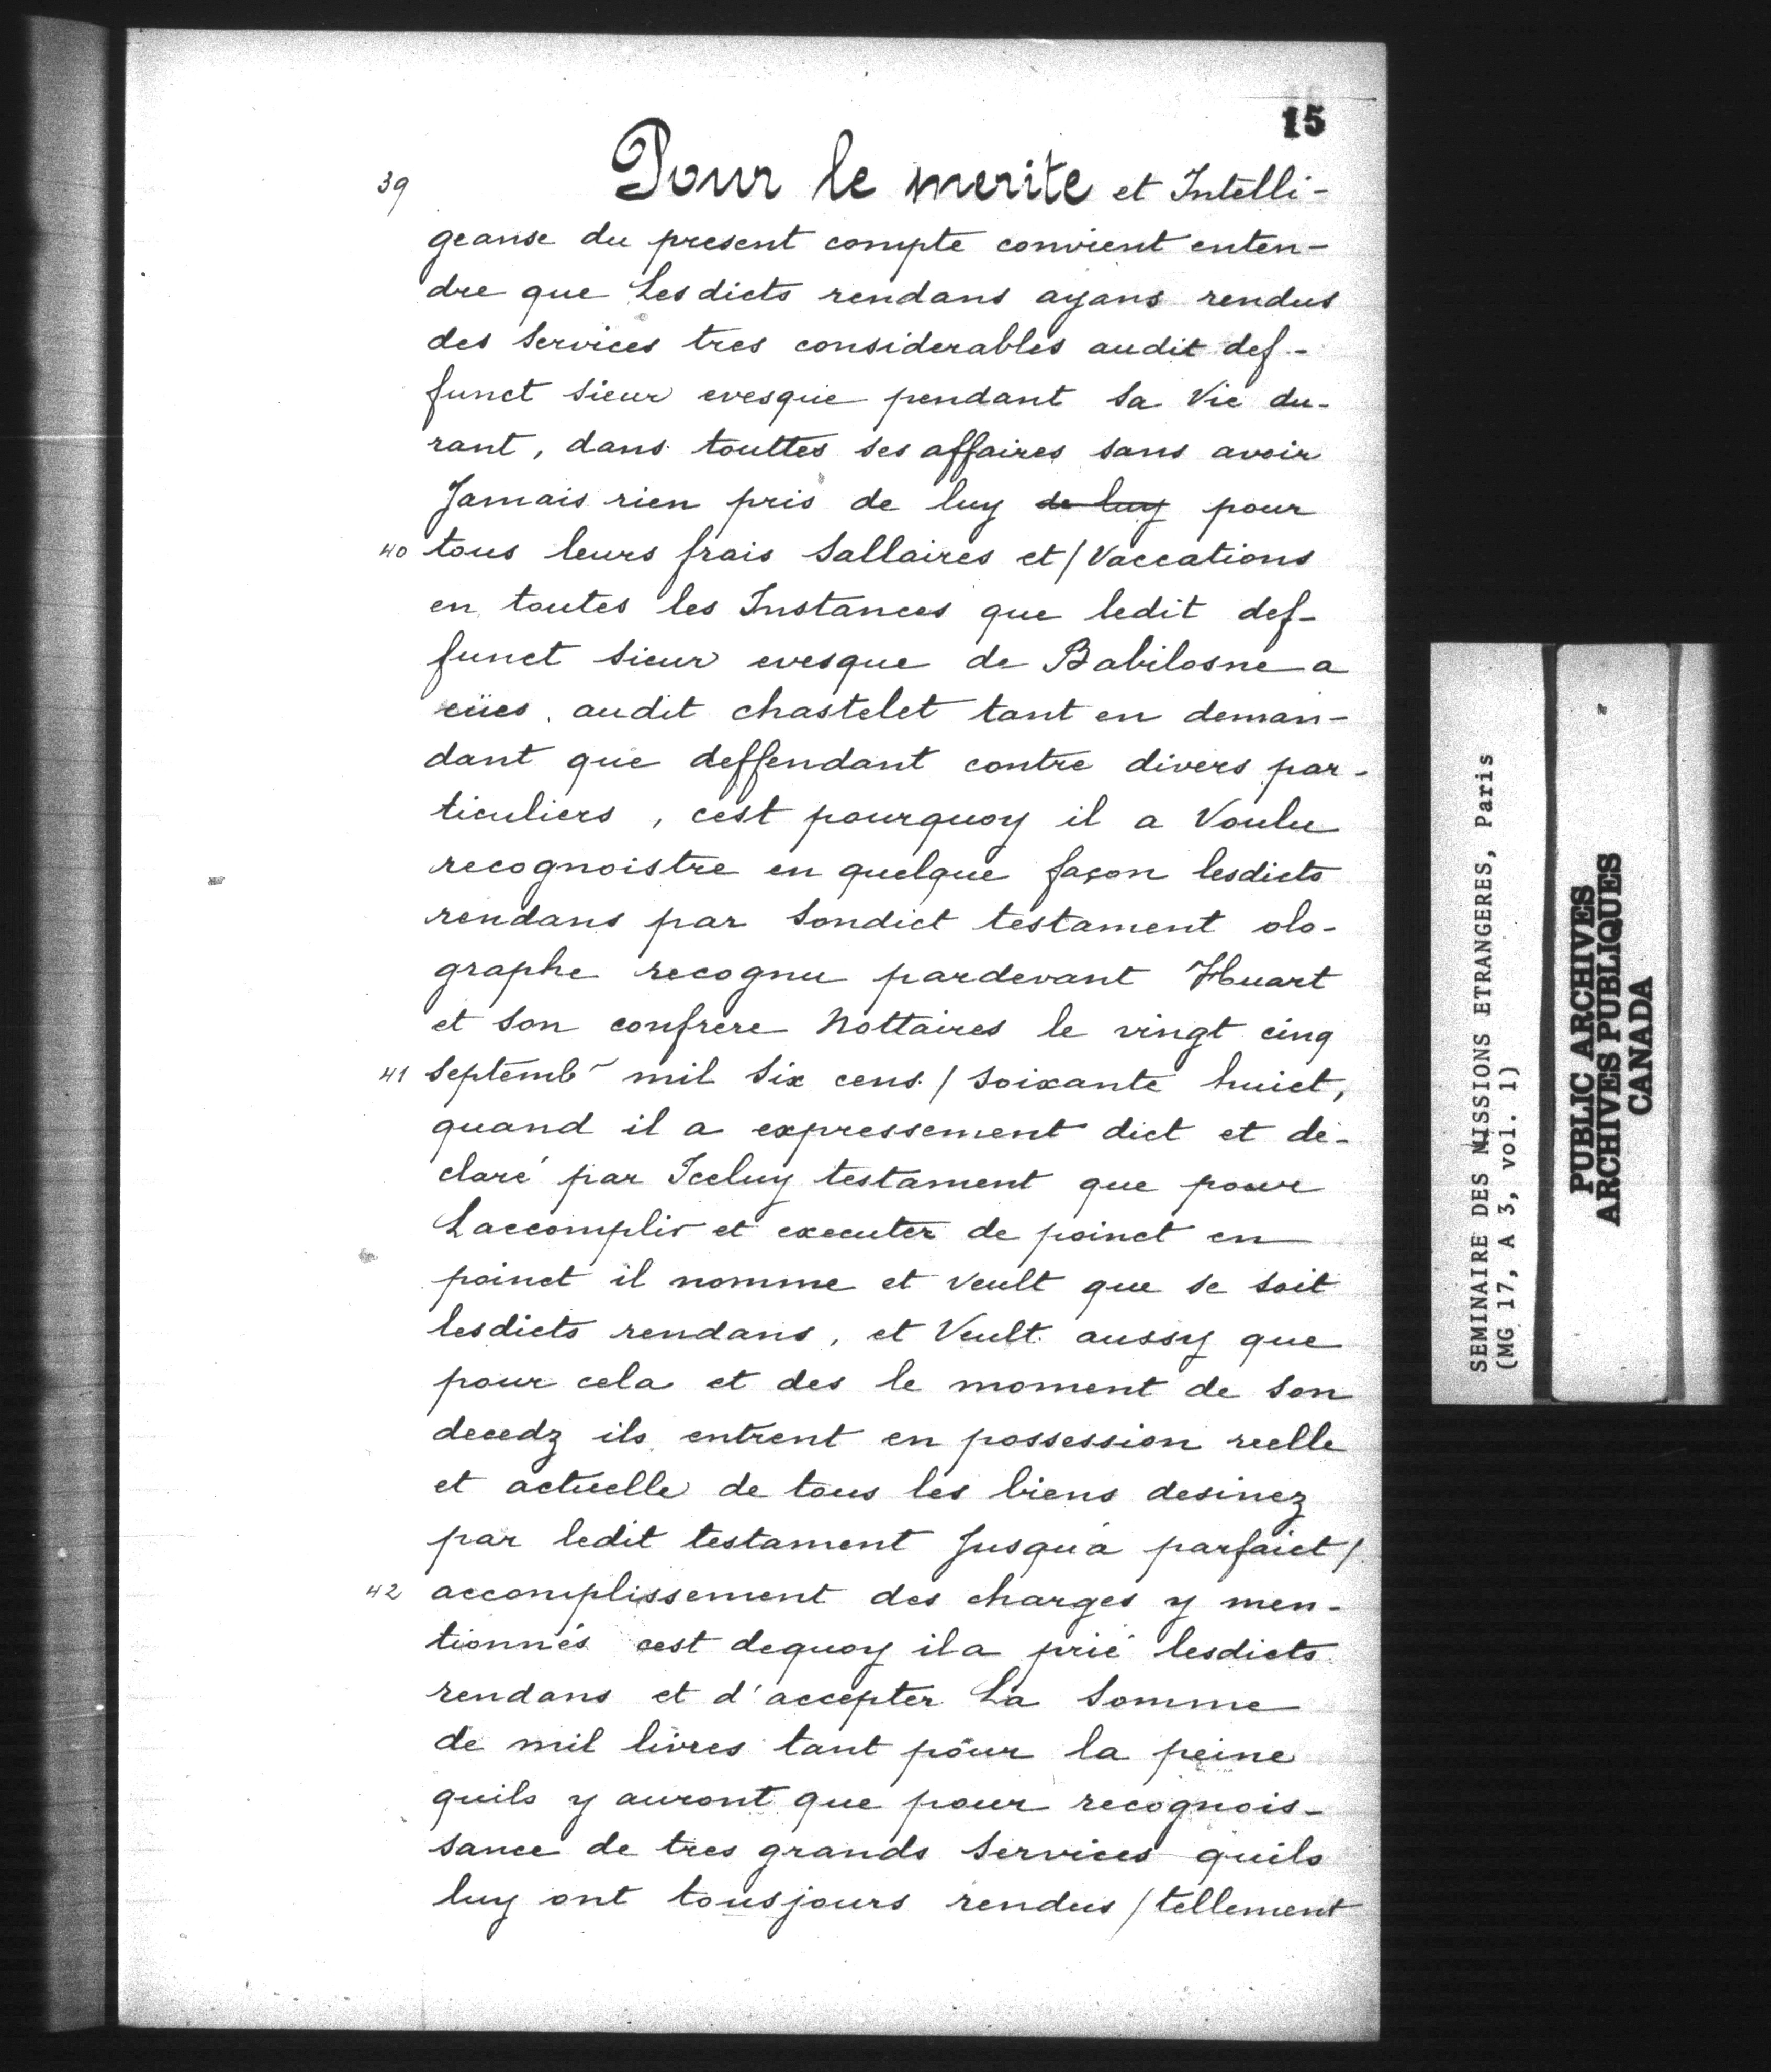 15
39 Pour le merite et Intelli-
geanse du present compte convient enten-
dre que Lesdicts rendans ayans rendus
des services tres considerables audit def-
funct sieur evesque pendant sa Vie du-
rant, dans touttes ses affaires sans avoir
Jamais rien pris de luy de luy pour
40 tous leurs frais sallaires et / Vaccations
en toutes les Instances que ledit def-
funct sieur evesque de Babilosne a
eües audit chastelet tant en deman-
dant que deffendant contre divers par-
ticuliers, cest pourquoy il a Voulu
recognoistre en quelque façon lesdicts
rendans par sondict testament olo-
graphe recognu pardevant Huart
et son confrere Nottaires le vingt cinq
41 septembr mil six cens / soixante huict,
quand il a expressement dict et de-
claré par Iceluy testament que pour
Laccomplir et executer de poinct en
poinct il nomme et veult que se soit
lesdicts rendans, et Veult aussy que
pour cela et des le moment de son
decedz ils entrent en possession reelle
et actuelle de tous les biens desinez
par ledit testament Jusqu'a parfaict /
42 accomplissement des charges y men-
tionnés cest dequoy il a prié lesdicts
rendans et d'accepter La somme
de mil livres tant pour la peine
quils y auront que pour recognois-
sance de tres grands services quils
luy ont tousjours rendus / tellement
SEMINAIRE DES MISSIONS ETRANGERES, Paris
(MG 17, A 3, vol. 1)
PUBLIC ARCHIVES
ARCHIVES PUBLIQUES
CANADA